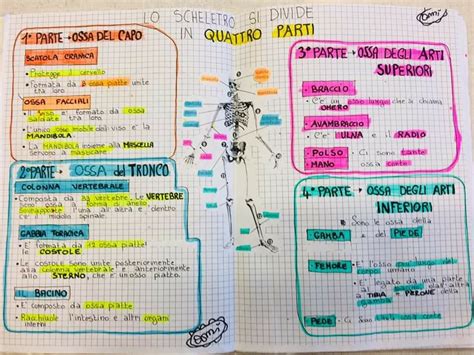 LO SCHELETRO SI DIVIDE
IN QUATTRO PARTI
1ª PARTE → OSSA DEL CAPO
SCATOLA CRANICA
• Protegge il cervello
• Formata da 8 ossa piatte unite
tra loro
OSSA FACCIALI
• Il viso è formato da ossa
tra loro
• L'unico osso mobile del viso è la
MANDIBOLA
• La MANDIBOLA insieme alla MASCELLA
servono a masticare
2ª PARTE → OSSA del TRONCO
COLONNA VERTEBRALE
• Composta da 33 vertebre. Le VERTEBRE
sono ossa a forma di anello,
sovrapposte l'una all'altra e dentro
c'è il midollo spinale
GABBIA TORACICA
• E' formata da 12 ossa piatte:
le COSTOLE
• Le COSTOLE sono unite posteriormente
alla colonna vertebrale e anteriormente
allo STERNO, che è un osso piatto.
IL BACINO
• E' composto da ossa piatte
• Racchiude l'intestino e altri organi
interni
Domi
3ª PARTE → OSSA DEGLI ARTI
SUPERIORI
• BRACCIO
• C'è un osso lungo che si chiama
OMERO
• AVAMBRACCIO
• C'è l'ULNA e il RADIO
• POLSO
MANO
Ci sono tante
ossa corte
4ª PARTE → OSSA DEGLI ARTI
INFERIORI
• Sono le ossa della
GAMBA e del PIEDE
FEMORE
• E' l'osso più lungo del
corpo umano
• E' legato da una parte
TIBIA PERONE della
PIEDE
• Ci sono
Domi